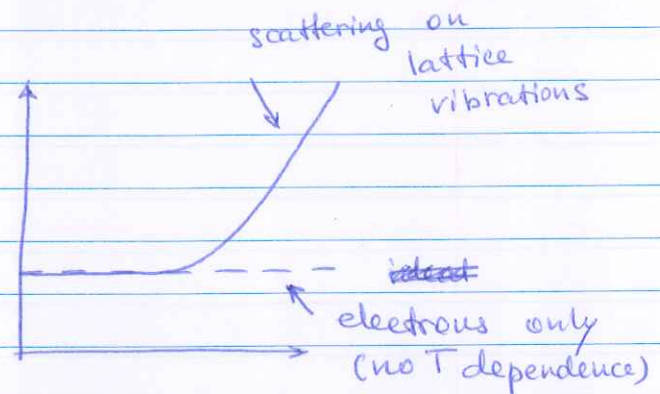 scattering on
lattice
vibrations
electrons only
(no T dependence)